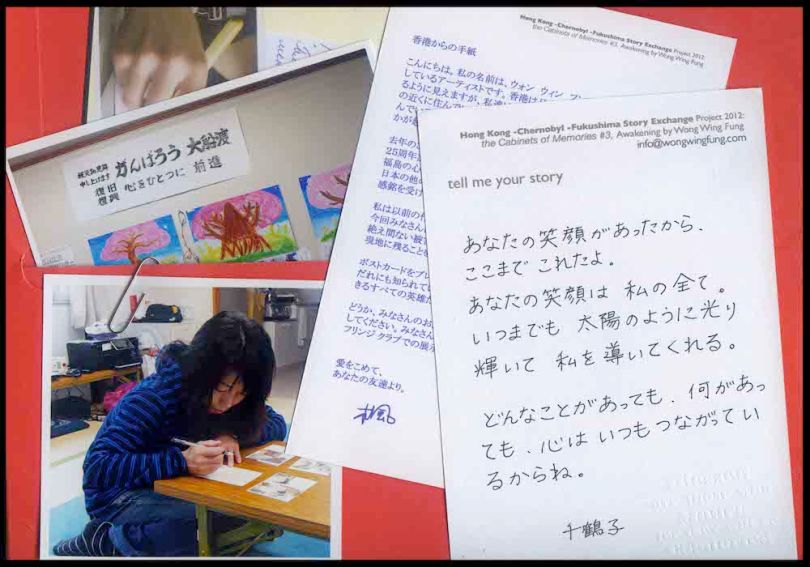 被災御見舞
申し上げます
復旧
復興
がんばろう 大船渡
心をひとつに 前進
Hong Kong -Chernobyl -Fukushima Story Exchange Project 2012:
the Cabinets of Memories #3, Awakening by Wong Wing Fung
香港からの手紙
こんにちは。私の名前は、ウォン ウィン
しているアーティストです。香港は
るように見えますが、私達
の近くに住んで
去年の
25周年
福島の心
日本の他
感銘を受け
私は以前の
今回みなさん
絶え間ない被
現地に残ること
ポストカードをプレ
だれにも知られてい
きるすべての英雄
どうか、みなさんのお
してください。みなさん
フリンジ クラブでの展示
愛をこめて、
あなたの友達より。
楓
Hong Kong -Chernobyl -Fukushima Story Exchange Project 2012:
the Cabinets of Memories #3, Awakening by Wong Wing Fung
info@wongwingfung.com
tell me your story
あなたの笑顔があったから、
ここまで これたよ。
あなたの笑顔は 私の全て。
いつまでも 太陽のように光り
輝いて 私を導いてくれる。
どんなことがあっても、何があっ
ても、心は いつもつながってい
るからね。
千鶴子